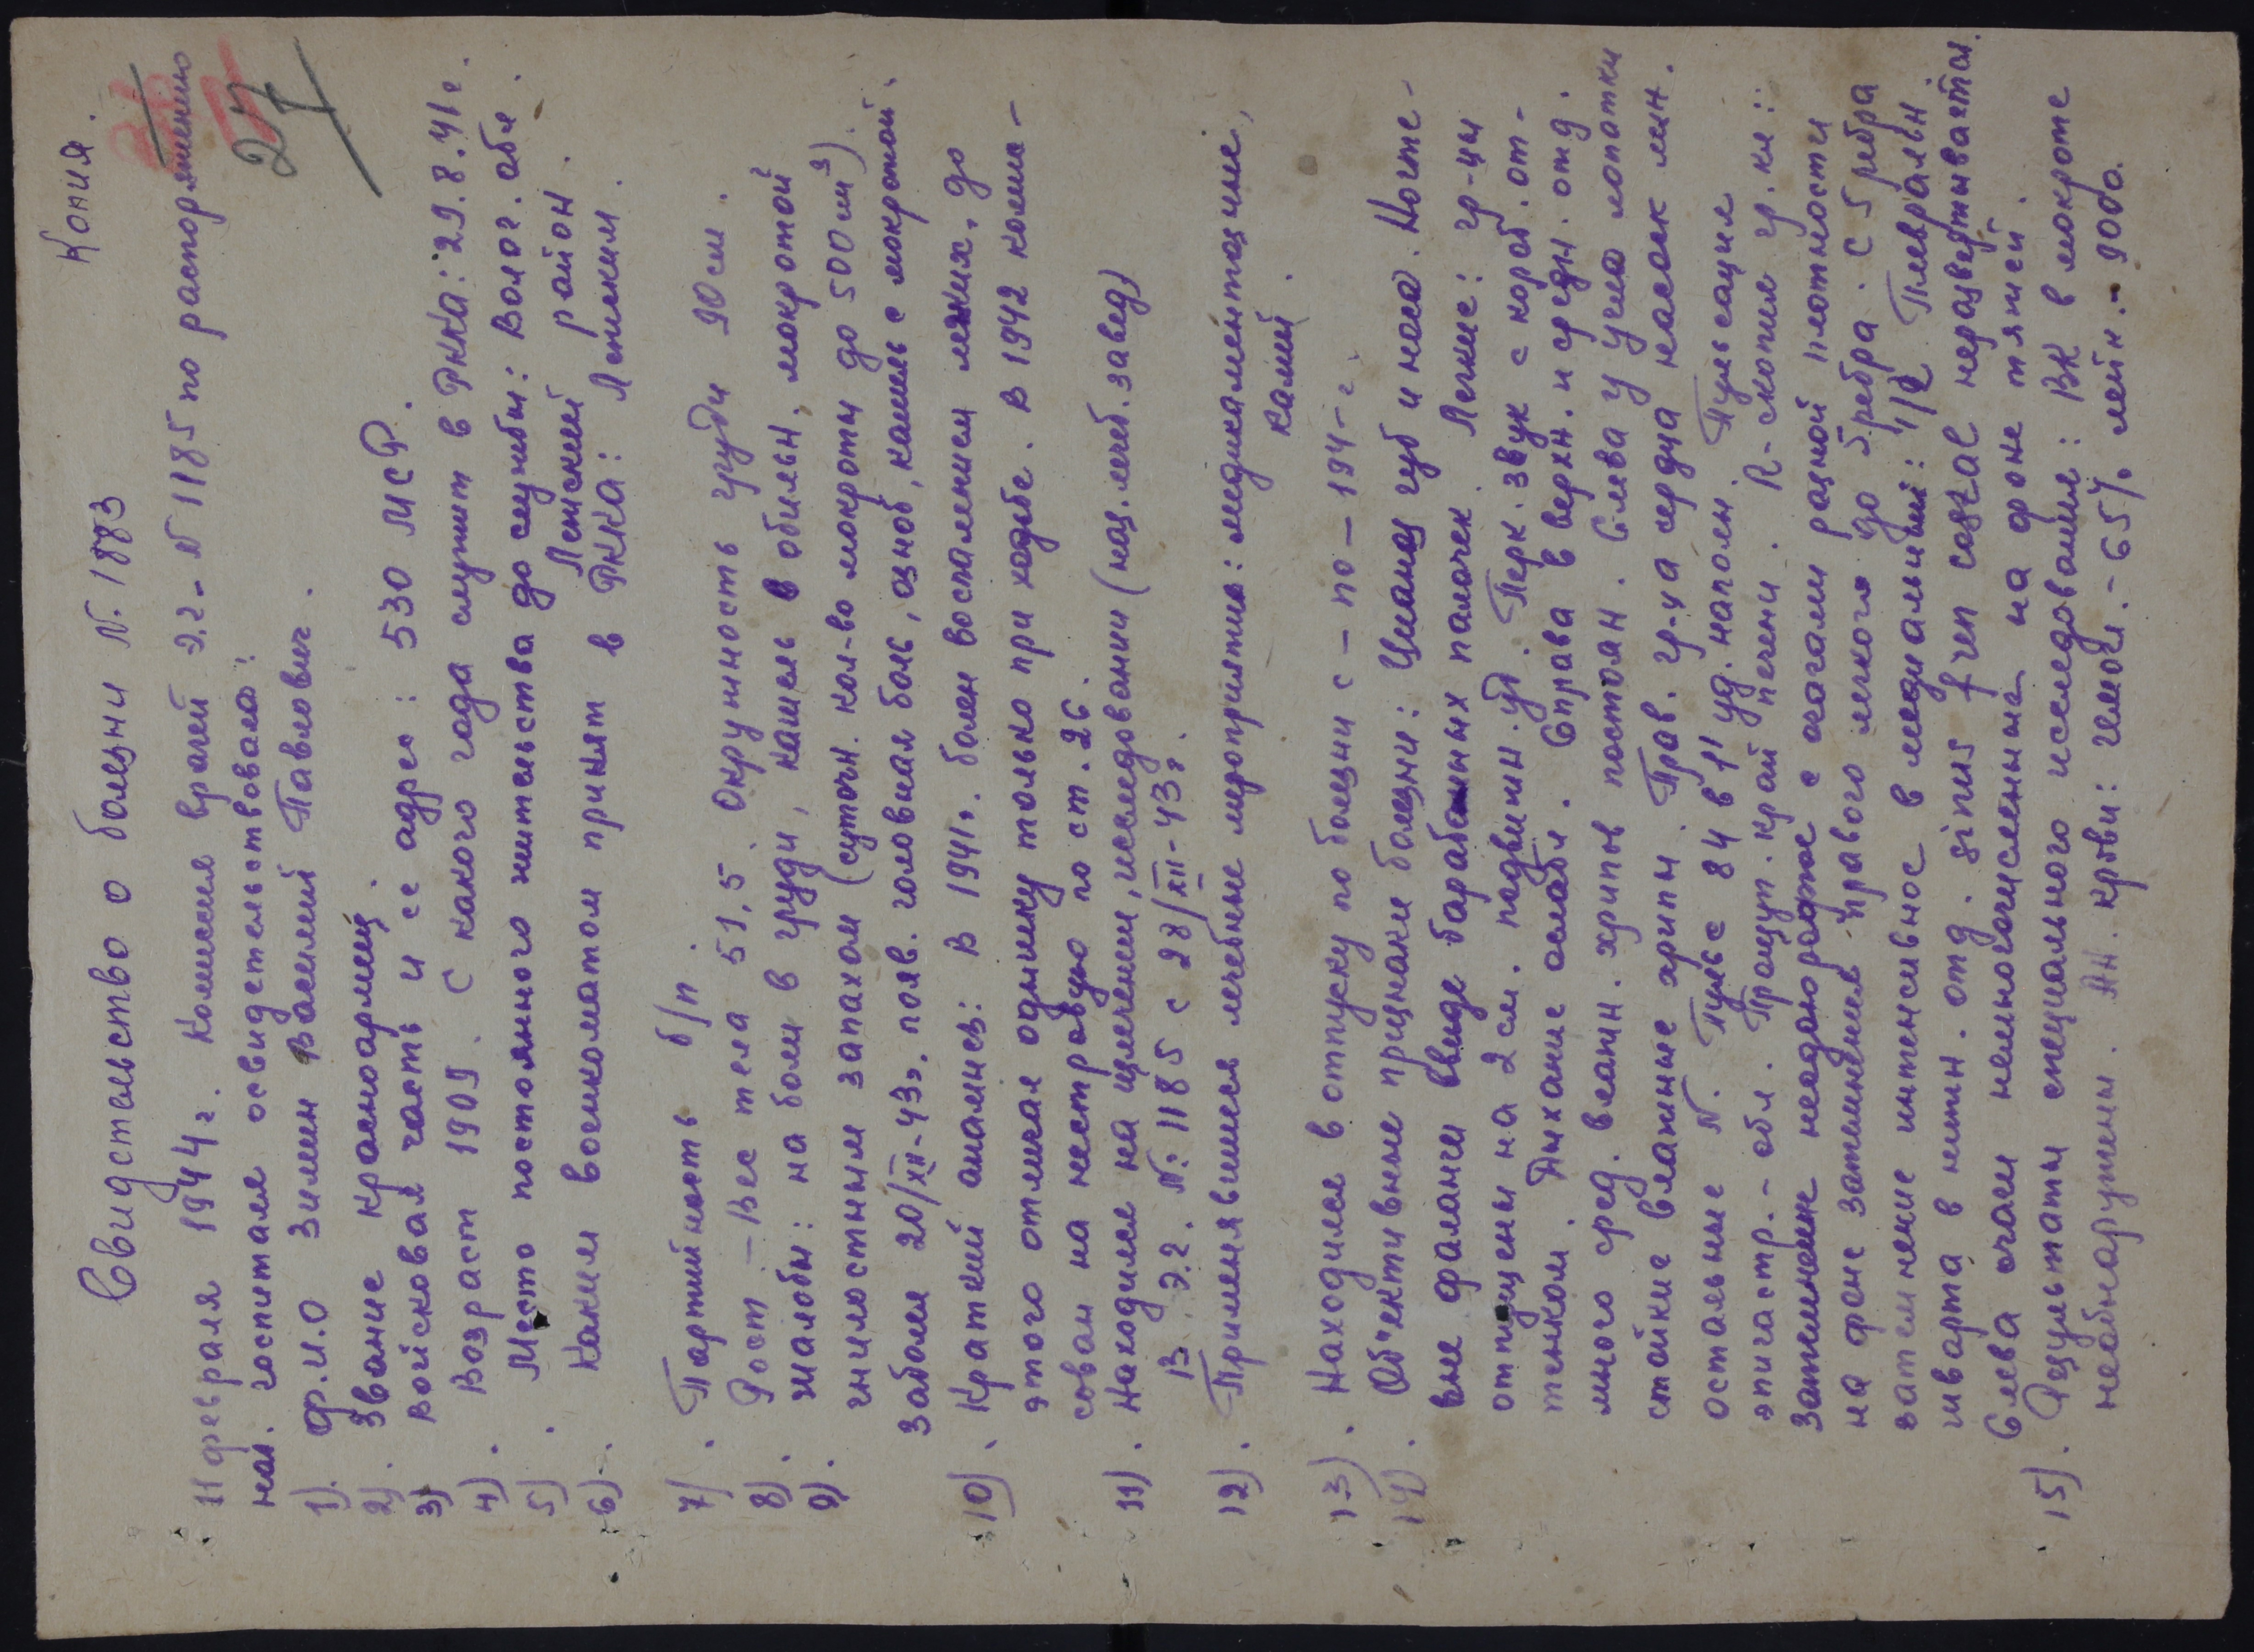 Копия.
27
Свидетельство о болезни N. 1883
11 февраля 1944 г. Комиссия врачей э.г. N 1185 по распоряжению
нач. госпиталя освидетельствовала:
1). Ф.И.О Зимин Василий Павлович.
2). Звание красноармеец.
3) Войсковая часть и ее адрес: 530 МСР.
4). Возраст 1909. С какого года служит в РККА: 29.8.41г.
5). Место постоянного жительства до службы: Волог. обл.
Лежский район.
6). Каким военкоматом принят в РККА: Лежским.
7). Партийность б/п.
8). Рост – Вес тела 51,5. Окружность груди 90 см.
9). Жалобы: на боли в груди, кашель в обильн. мокротой
гнилостным запахом (суточн. кол-во мокроты до 500 см³).
Заболел 20/XII-43г. появ. головная боль, озноб, кашель с мокротой.
10). Краткий анамнез: В 1941г. болел воспалением легких. до
этого отмечал одышку только при ходьбе. В 1942 комис-
сован на нестроевую по ст. 26.
11). Находился на излечении, исследовании (наз. лечеб. завед)
в э.г. N: 1185 с 28/XII-43г.
12). Применявшиеся лечебные мероприятия: медикаментозные,
камф.
13). Находился в отпуску по болезни с – по – 194– г.
14). Об'ективные признаки болезни: Цианоз губ и носа. Ногте-
вые фаланги ввиде барабанных палочек. Легкие: гр-цы
опущены на 2 см. подвижн. уд. Перк. звук с короб. от-
тенком. Дыхание ослабл. Справа в верхн. и средн. отд.
много сред. велич. хрипов постоян. Слева у угла лопатки
стойкие влажные хрипы. Прав. гр-ца сердца неясок мен.
остальные N. Пульс 84 в 1" уд. наполн. Пульсация
эпигастр.- обл. Прощуп. край печени. R-скопия гр. кл:
затемнение неоднородное с очагами разной плотности
на фоне затемнения правого легкого до 5 ребра. С 5 ребра
затемнение интенсивное в медиальной 1/2 Плевральн
шварта в нижн. отд. sinus fren costal неразвертывается.
Слева очаги немногочисленные на фоне тяжей.
15). Результаты специального исследования: ВК в мокроте
необнаружены. Ан. крови: гемогл.- 65%, лейк.- 9000.